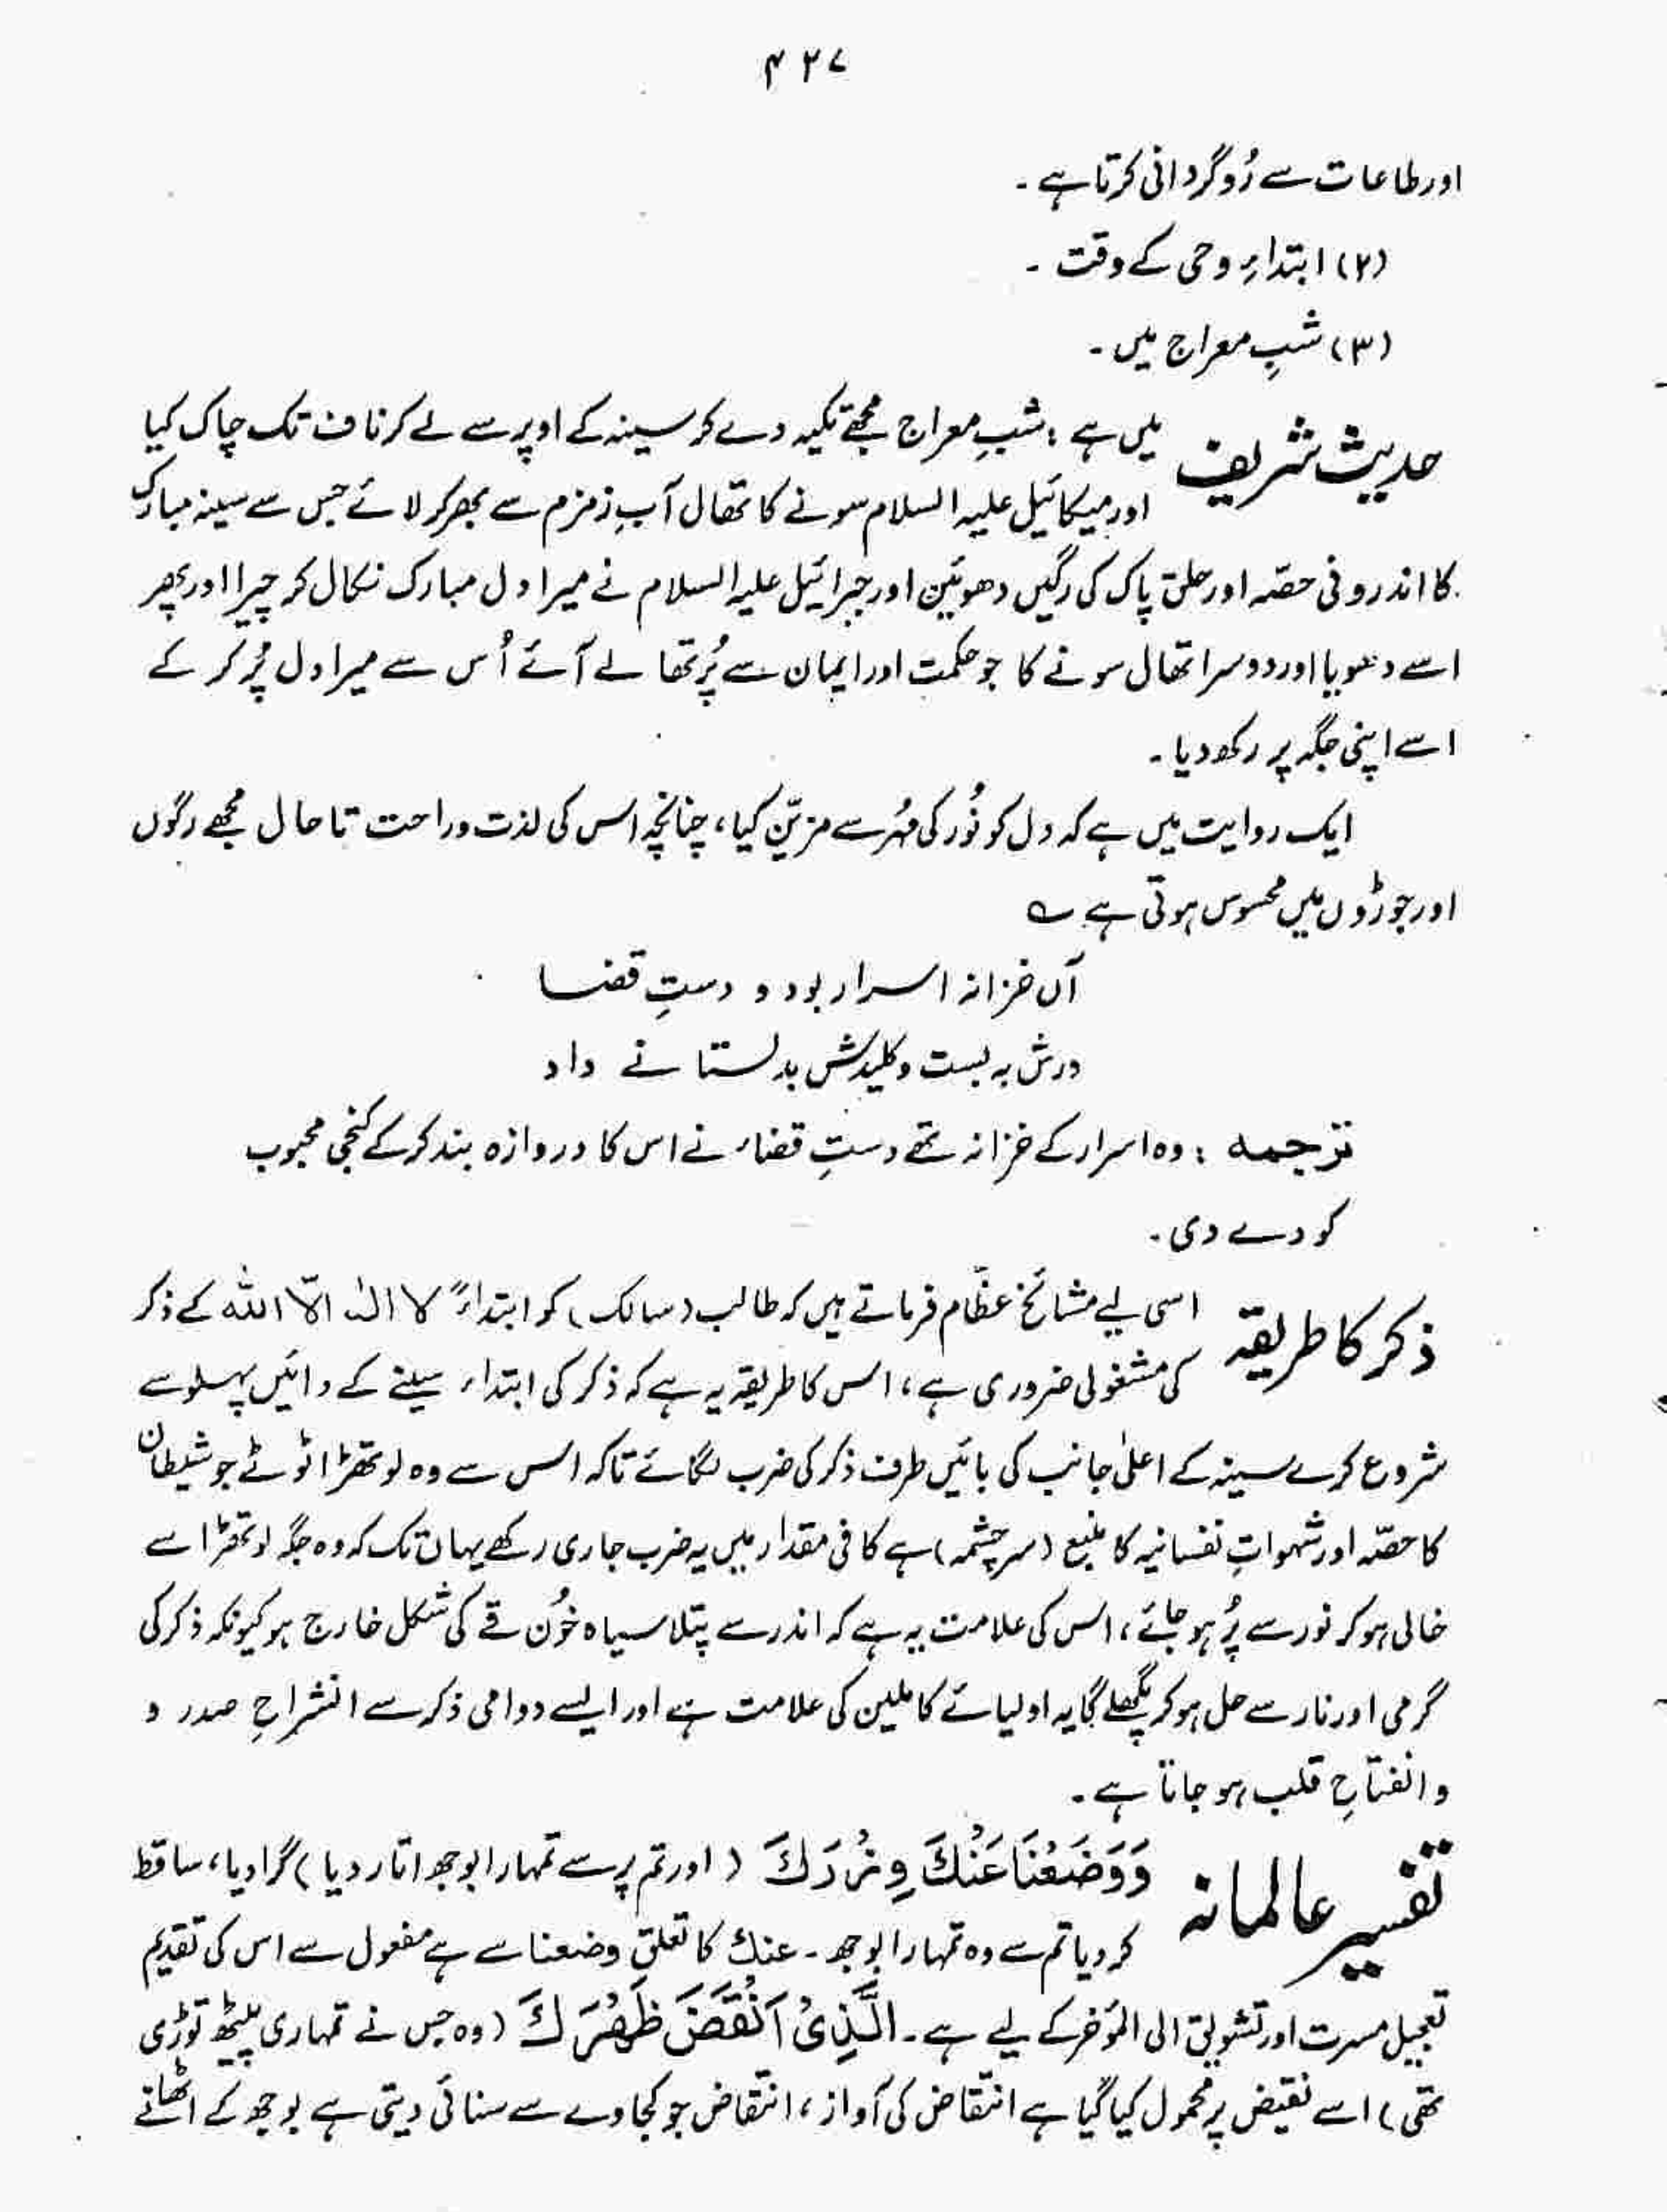 ۴۲۷
اور طاعات سے رُوگردانی کرتا ہے ۔
(۲) ابتداءِ وحی کے وقت ۔
(۳) شبِ معراج میں ۔
حدیث شریف میں ہے : شبِ معراج مجھے تکیہ دے کر سینہ کے اوپر سے لے کر ناف تک چاک کیا
اور میکائیل علیہ السلام سونے کا تھال آبِ زمزم سے بھر کر لائے جس سے سینہ مبارک
کا اندرونی حصّہ اور حلق پاک کی رگیں دھوئیں اور جبرائیل علیہ السلام نے میرا دل مبارک نکال کر چیرا اور پھر
اسے دھویا اور دوسرا تھال سونے کا جو حکمت اور ایمان سے پُر تھا لے آئے اُس سے میرا دل پُر کر کے
اسے اپنی جگہ پر رکھ دیا ۔
ایک روایت میں ہے کہ دل کو نُور کی مُہر سے مزیّن کیا ، چنانچہ اس کی لذت و راحت تا حال مجھے رگوں
اور جوڑوں میں محسوس ہوتی ہے ؎
آں خزانہ اسرار بود و دستِ قضا
درش بہ بست و کلیدش بدلستانے داد
ترجمہ : وہ اسرار کے خزانہ تھے دستِ قضاء نے اس کا دروازہ بند کر کے کنجی محبوب
کو دے دی ۔
ذکر کا طریقہ اسی لیے مشائخ عظّام فرماتے ہیں کہ طالب (سالک) کو ابتداءً لا الٰہ الّا اللہ کے ذکر
کی مشغولی ضروری ہے ، اس کا طریقہ یہ ہے کہ ذکر کی ابتداء سینے کے دائیں پہلو سے
شروع کرے سینہ کے اعلیٰ جانب کی بائیں طرف ذکر کی ضرب لگائے تاکہ اس سے وہ لوتھڑا ٹوٹے جو شیطان
کا حصّہ اور شہواتِ نفسانیہ کا منبع (سرچشمہ) ہے کافی مقدار میں یہ ضرب جاری رکھے یہاں تک کہ وہ جگہ لوتھڑا سے
خالی ہو کر نور سے پُر ہو جائے ، اس کی علامت یہ ہے کہ اندر سے پتلا سیاہ خُون قے کی شکل خارج ہو کیونکہ ذکر کی
گرمی اور نار سے حل ہو کر پگھلے گا یہ اولیائے کاملین کی علامت ہے اور ایسے دوامی ذکر سے انشراحِ صدر و
و انفتاحِ قلب ہو جاتا ہے ۔
تفسیر عالمانہ وَوَضَعْنَا عَنْكَ وِزْرَكَ (اور تم پر سے تمہارا بوجھ اتار دیا) گرا دیا ، ساقط
کر دیا تم سے وہ تمہارا بوجھ ۔ عنك کا تعلق وضعنا سے ہے مفعول سے اس کی تقدیم
تعجیل مسرت اور تشویق الی المؤخر کے لیے ہے ۔ الَّذِیْ اَنْقَضَ ظَهْرَكَ (وہ جس نے تمہاری پیٹھ توڑی
تھی) اسے نقیض پر محمول کیا گیا ہے انتقاض کی آواز ، انتقاض جو کجاوے سے سنائی دیتی ہے بوجھ کے اٹھانے